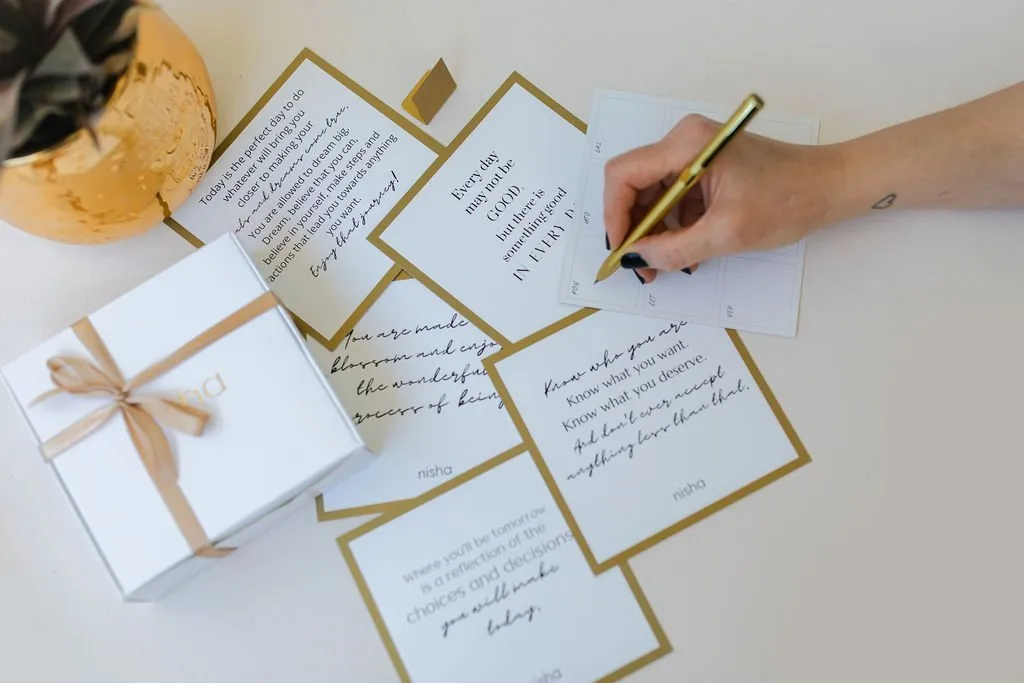 Today is the perfect day to do
whatever will bring you
closer to making your
and dreams come true.
You are allowed to dream big.
Dream, believe that you can,
believe in yourself, make steps and
actions that lead you towards anything
you want.
Enjoy that journey!
Every day
may not be
GOOD,
but there is
something good
IN EVERY D
You are made
blossom and enjo
the wonderful
rocess of being
nisha
Know who you are
Know what you want.
Know what you deserve.
And don't ever accept
anything less than that.
nisha
Where you'll be tomorrow
is a reflection of the
choices and decisions
you will make
today.
nisha